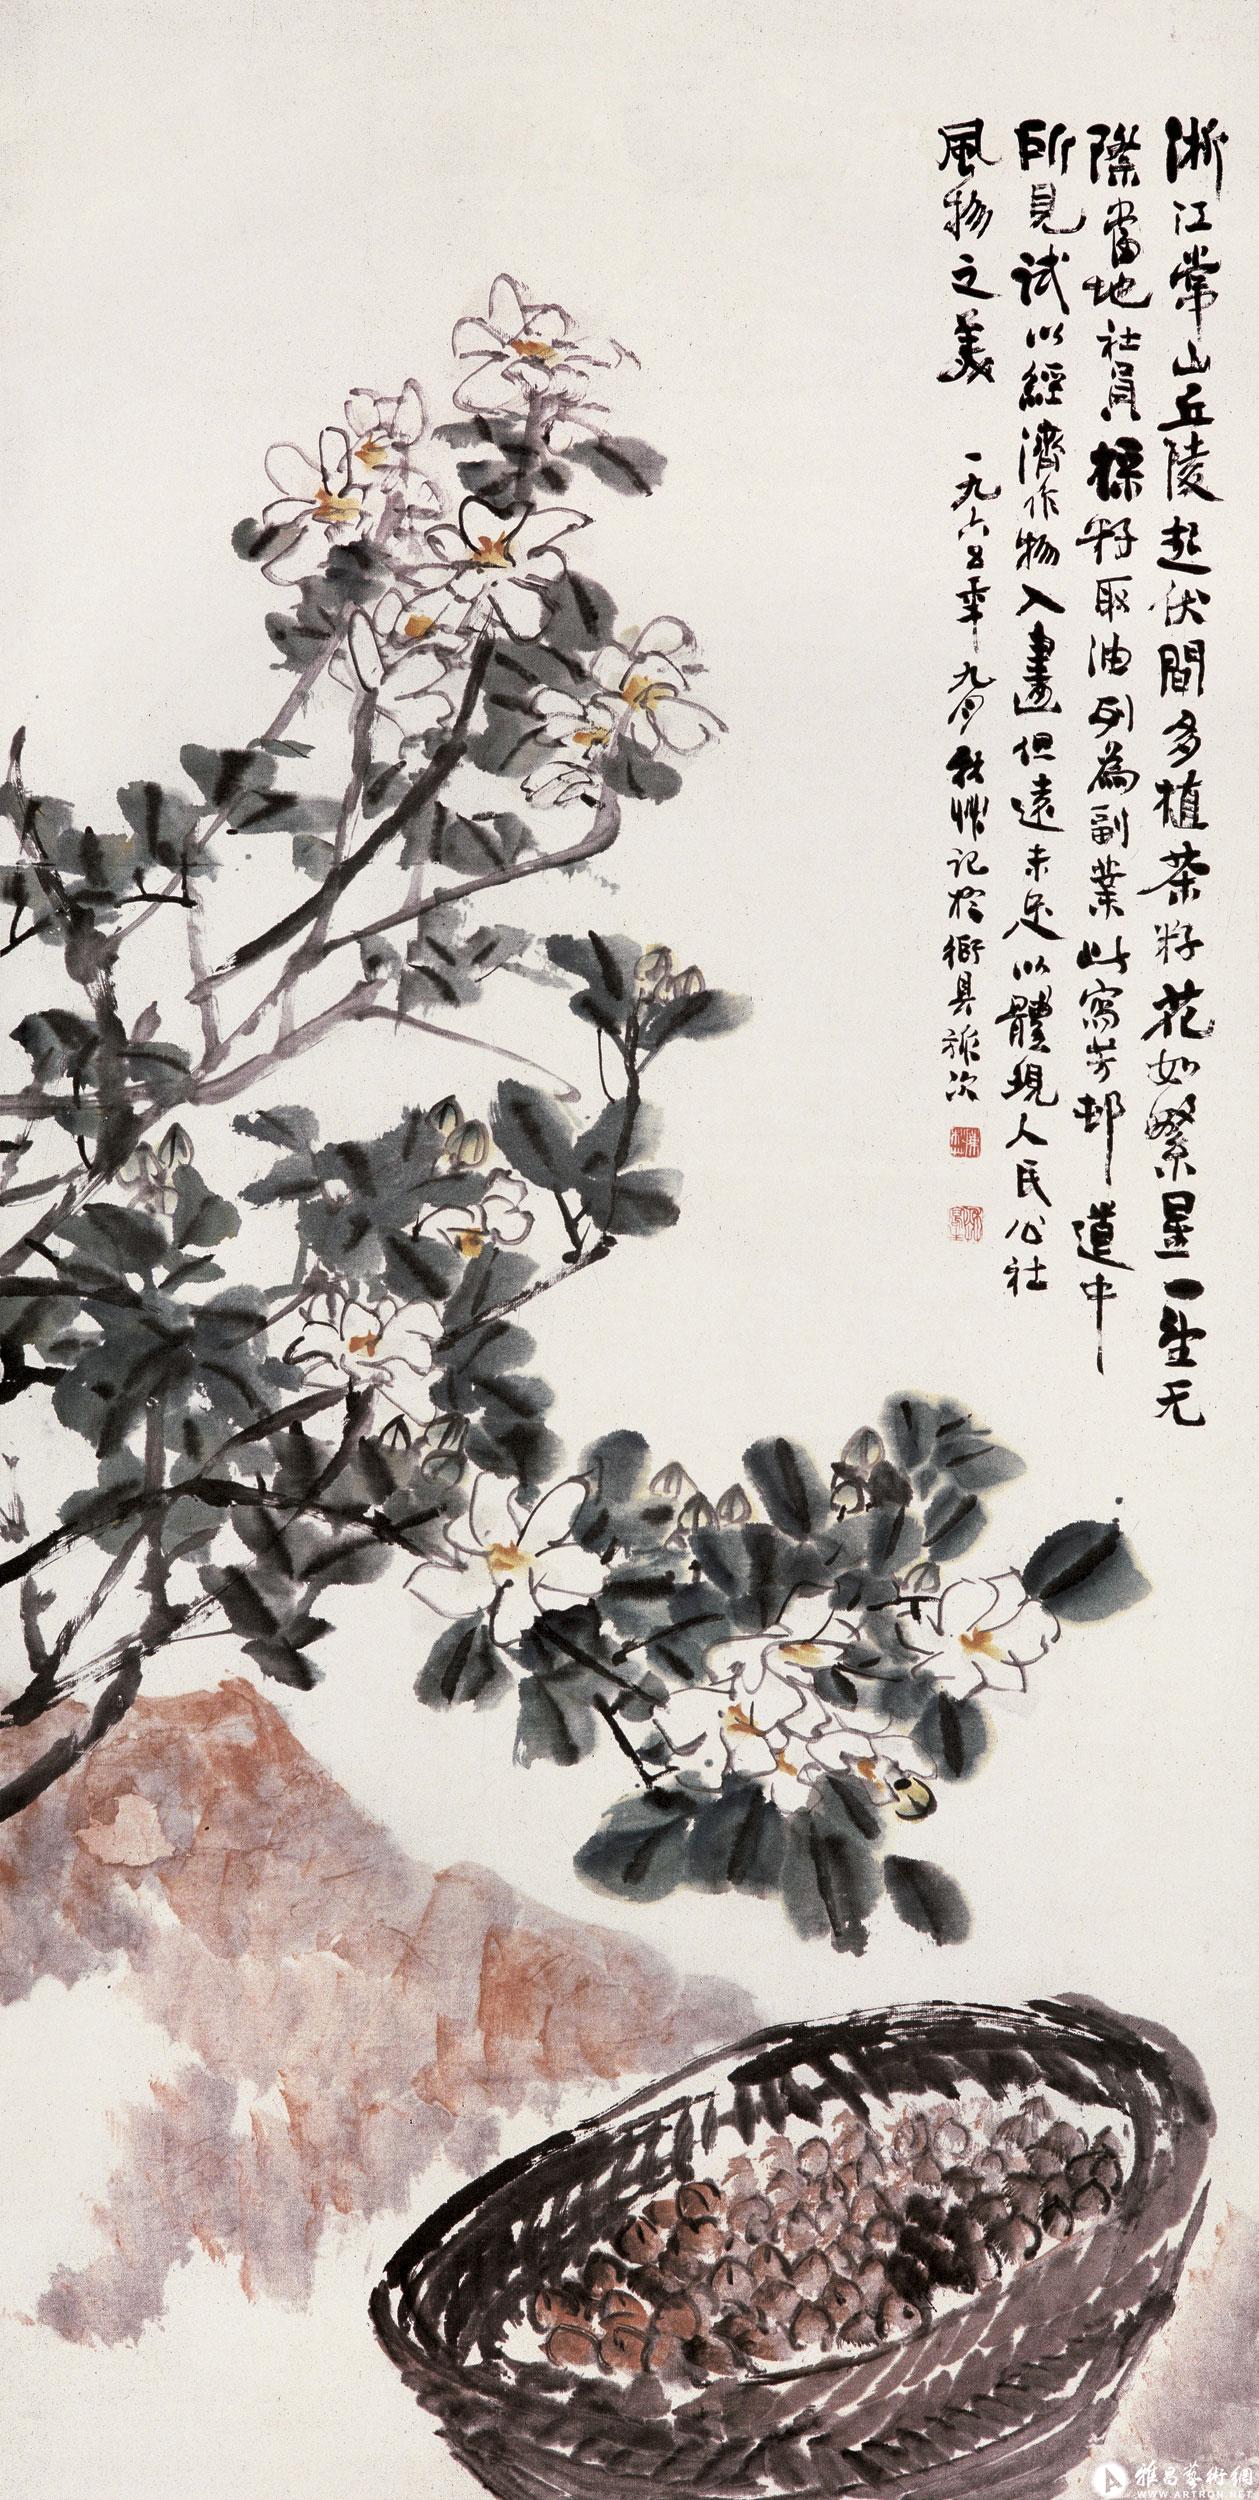 浙江常山丘陵起伏間多植茶籽花如繁星一望无
際當地社員採籽取油列為副業此寫芳邨道中
所見試以經濟作物入畫但遠未足以體現人民公社
風物之美
一九六五年九月秋艸記於衢縣旅次
雅昌藝術網
WWW.ARTRON.NET